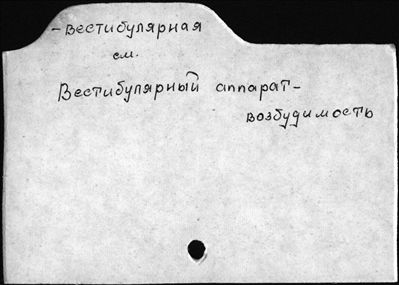 -вестибулярная
см.
Вестибулярный аппарат-
возбудимость